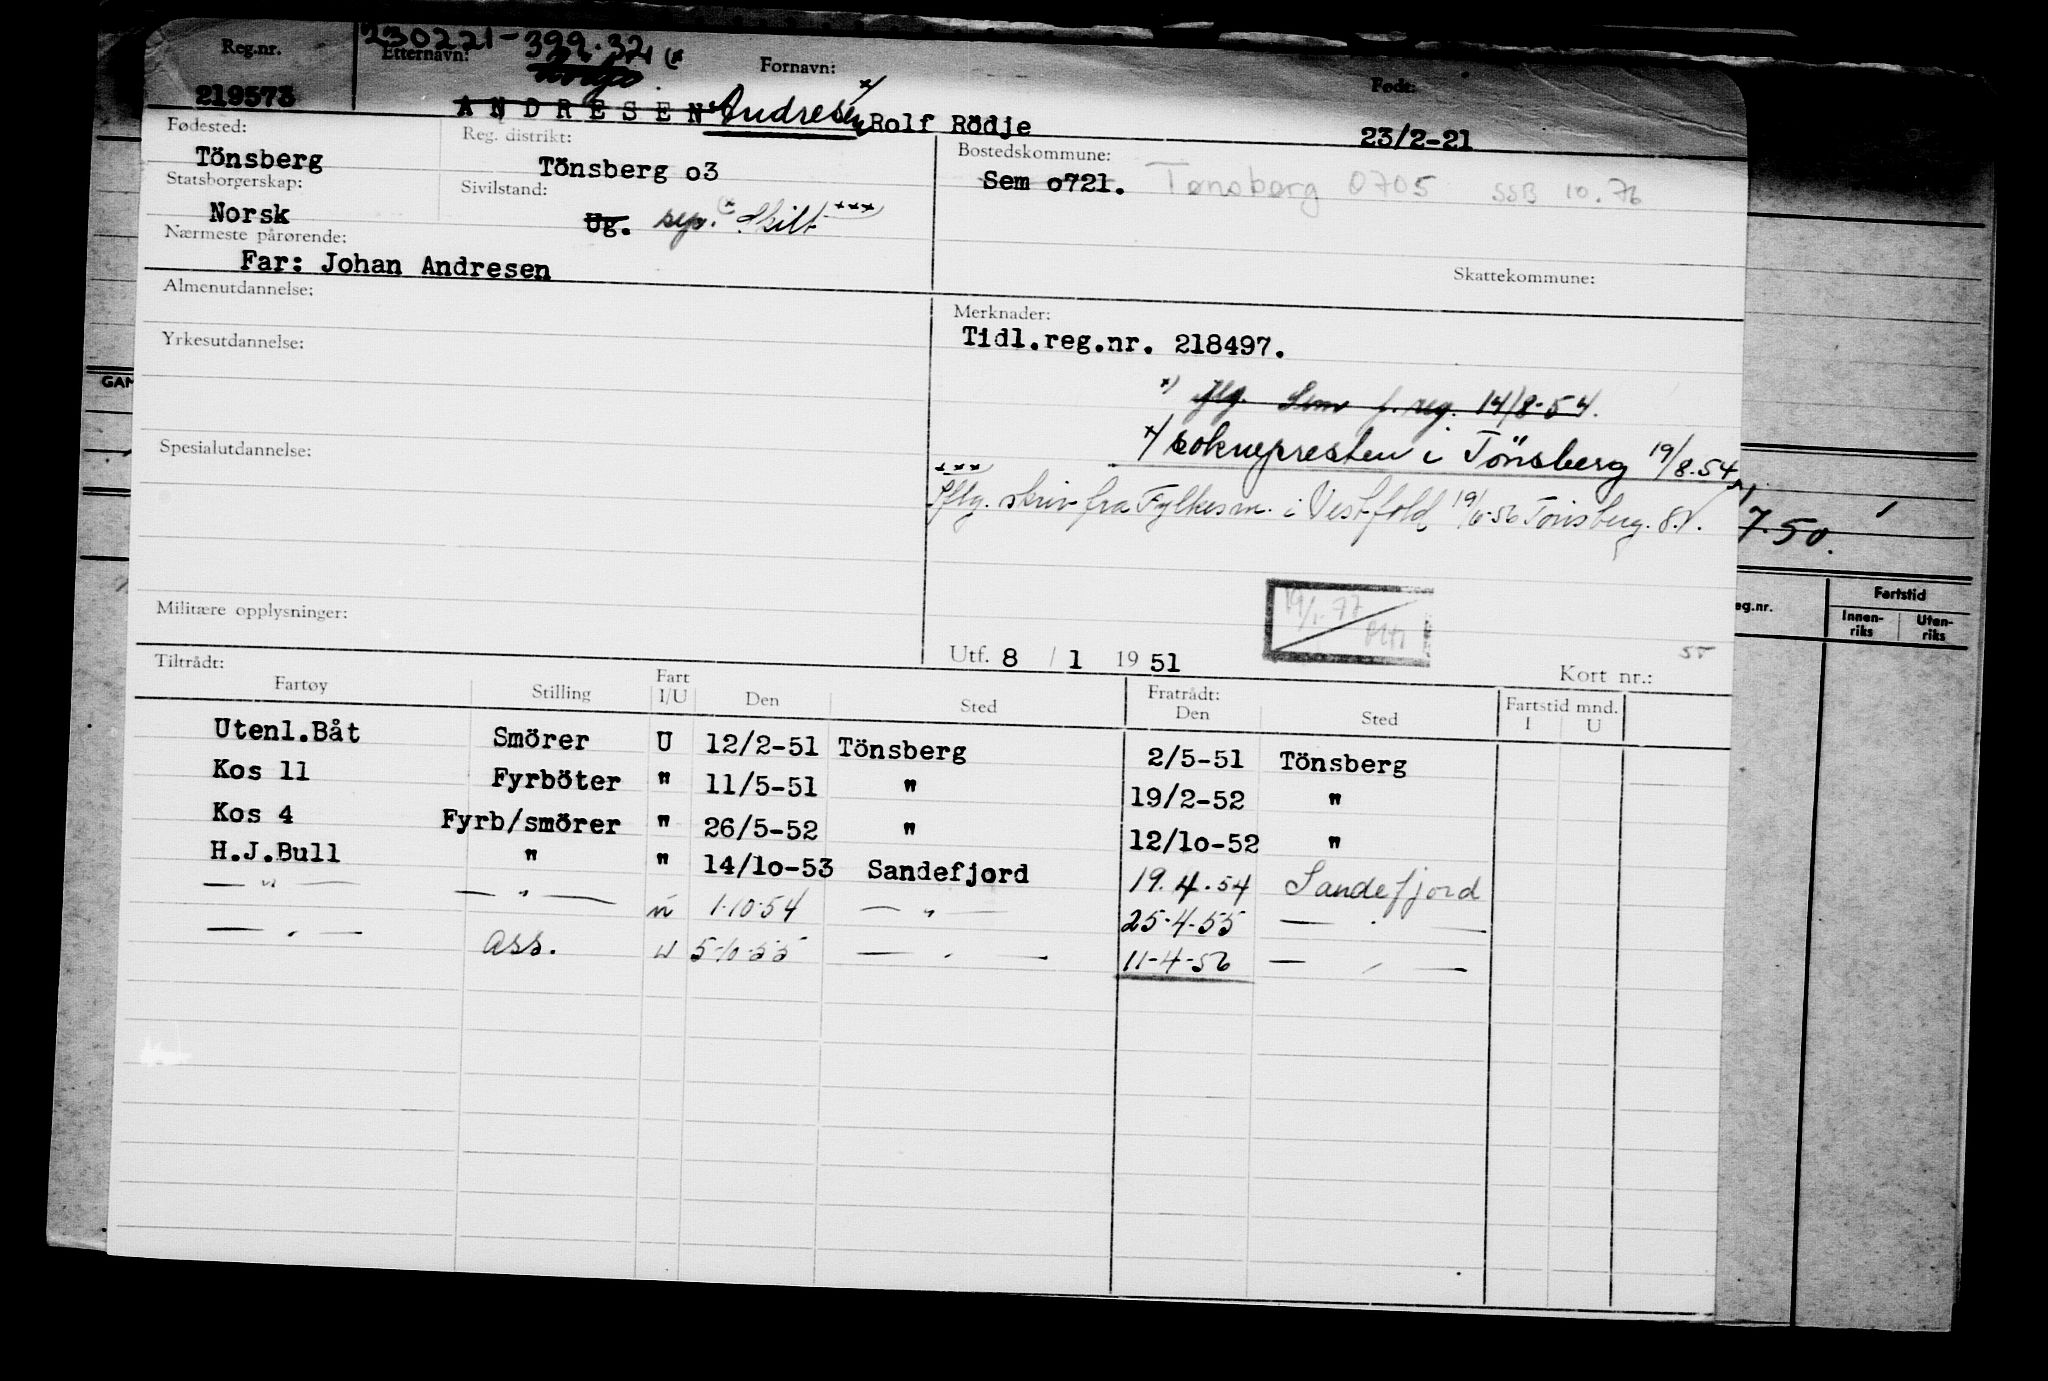 230221-399.32 (*
Reg.nr. Etternavn: Fornavn: Født:
219573 ANDRESEN Andresen x/ Rolf Rödje 23/2-21
Fødested: Reg. distrikt: Bostedskommune:
Tönsberg Tönsberg o3 Sem o721. Tønsberg 0705 SSB 10.76
Statsborgerskap: Sivilstand:
Norsk Ug. sep. (* Skilt ***)
Nærmeste pårørende:
Far: Johan Andresen Skattekommune:
Almenutdannelse: Merknader:
Tidl.reg.nr. 218497.
Yrkesutdannelse:
*) Iflg. Sem f. reg. 14/8-54.
x/ soknepresten i Tönsberg 19/8-54
Spesialutdannelse:
***) Iflg. skriv fra Fylkesm. i Vestfold, Tönsberg.
7.50.
Fartstid
eg.nr. Innen-riks Uten-riks
GAM
Militære opplysninger:
19/1-77
Utf. 8 / 1 19 51 Kort nr.: 55
Tiltrådt: Fratrådt:
Fartøy Stilling Fart I/U Den Sted Den Sted Fartstid mnd. I U
Utenl.Båt Smörer U 12/2-51 Tönsberg 2/5-51 Tönsberg
Kos 11 Fyrböter " 11/5-51 " 19/2-52 "
Kos 4 Fyrb/smörer " 26/5-52 " 12/1o-52 "
H.J.Bull " " 14/1o-53 Sandefjord 19.4.54 Sandefjord
— " — — " — u 1-10-54 — " — 25-4-55 — " —
— " — ass. u 5-10-55 — " — 11-4-56 — " —